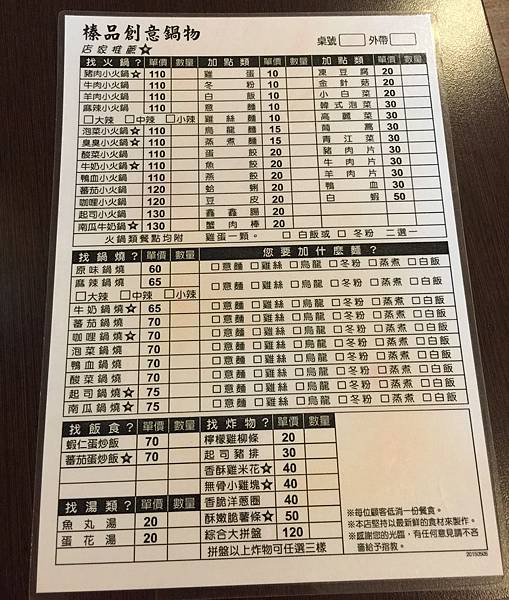 榛品創意鍋物
店家推薦☆
桌號 外帶
找火鍋? 單價 數量 加點類 單價 數量 加點類 單價 數量
豬肉小火鍋☆ 110 雞蛋 10 凍豆腐 20
牛肉小火鍋 110 冬粉 10 金針菇 20
羊肉小火鍋 110 白飯 10 小白菜 20
麻辣小火鍋 110 意麵 10 韓式泡菜 30
□大辣 □中辣 □小辣 雞絲麵 10 高麗菜 30
泡菜小火鍋☆ 110 烏龍麵 15 茼蒿 30
臭臭小火鍋☆ 110 蒸煮麵 15 青江菜 30
酸菜小火鍋 110 蛋餃 20 豬肉片 30
牛奶小火鍋☆ 110 魚餃 20 牛肉片 30
鴨血小火鍋 110 燕餃 20 羊肉片 30
番茄小火鍋 120 蛤蜊 20 鴨血 30
咖哩小火鍋 120 豆皮 20 白蝦 50
起司小火鍋 130 鑫鑫腸 20
南瓜牛奶鍋☆ 130 蟹肉棒 20
火鍋類餐點均附 雞蛋一顆。 □白飯或□冬粉 二選一
找鍋燒? 單價 數量 您要加什麼麵?
原味鍋燒 60 □意麵□雞絲□烏龍□冬粉□蒸煮□白飯
麻辣鍋燒 65 □意麵□雞絲□烏龍□冬粉□蒸煮□白飯
□大辣 □中辣 □小辣
牛奶鍋燒☆ 65 □意麵□雞絲□烏龍□冬粉□蒸煮□白飯
番茄鍋燒 70 □意麵□雞絲□烏龍□冬粉□蒸煮□白飯
咖哩鍋燒☆ 70 □意麵□雞絲□烏龍□冬粉□蒸煮□白飯
泡菜鍋燒 70 □意麵□雞絲□烏龍□冬粉□蒸煮□白飯
鴨血鍋燒 70 □意麵□雞絲□烏龍□冬粉□蒸煮□白飯
酸菜鍋燒 70 □意麵□雞絲□烏龍□冬粉□蒸煮□白飯
起司鍋燒☆ 75 □意麵□雞絲□烏龍□冬粉□蒸煮□白飯
南瓜鍋燒☆ 75 □意麵□雞絲□烏龍□冬粉□蒸煮□白飯
找飯食? 單價 數量
蝦仁蛋炒飯 70
蕃茄蛋炒飯☆ 70
找湯類? 單價 數量
魚丸湯 20
蛋花湯 20
找炸物? 單價 數量
檸檬雞柳條 20
起司豬排 30
香酥雞米花☆ 40
無骨小雞塊☆ 40
香脆洋蔥圈 40
酥嫩脆薯條☆ 50
綜合大拼盤 120
拼盤以上炸物可任選三樣
※每位顧客低消一份餐食。
※本店堅持以最新鮮的食材來製作。
※感謝您的光臨，有任何意見請不吝
嗇給予指教。
20150505